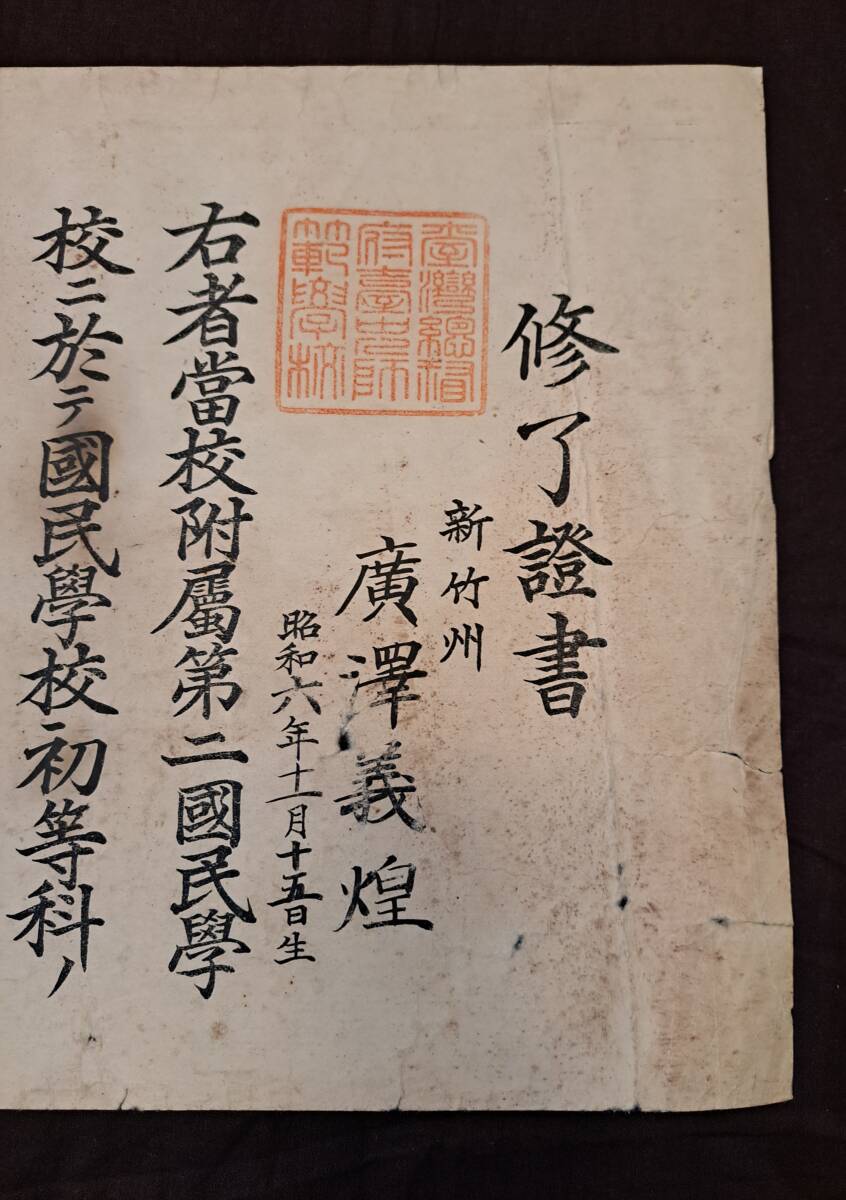 修了證書
新竹州
廣澤義煌
昭和六年十一月十五日生
臺灣總督
府臺中師
範學校
右者當校附屬第二國民學
校ニ於テ國民學校初等科ノ